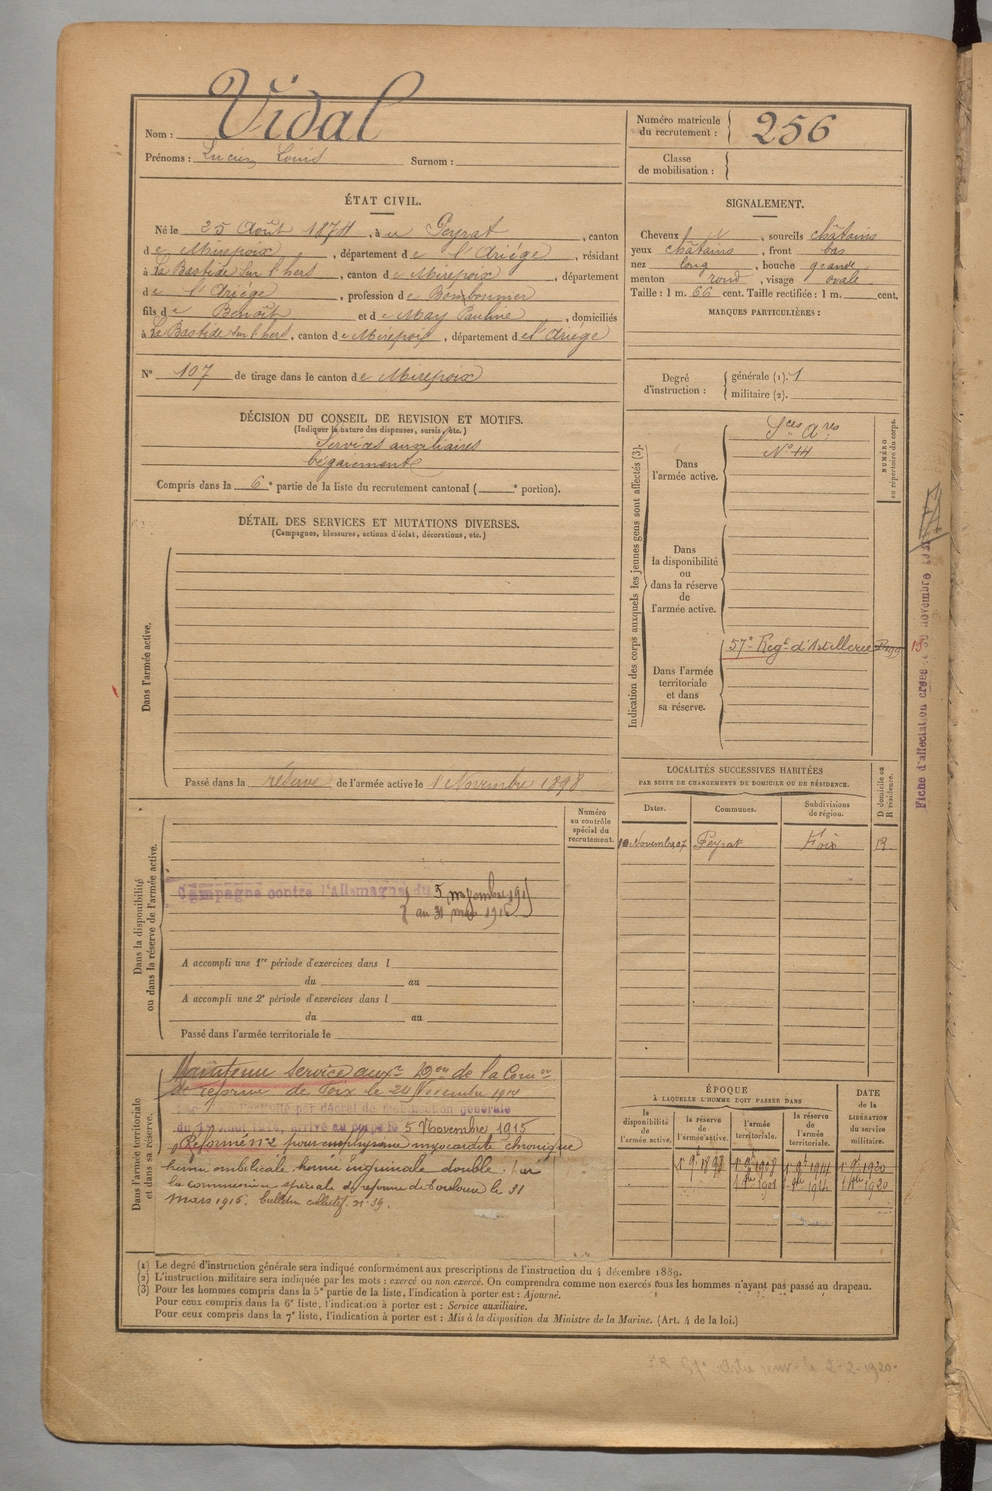 Nom : Vidal
Prénoms : Lucien Louis Surnom :
Numéro matricule du recrutement : 256
Classe de mobilisation :
ÉTAT CIVIL.
Né le 25 Août 1874, à Peyrat, canton
de Mirepoix, département de l'Ariège, résidant
à La Bastide sur l'hers, canton de Mirepoix, département
de l'Ariège, profession de
fils de Benoît et de May Pauline, domiciliés
à La Bastide sur l'hers, canton de Mirepoix, département de l'Ariège
N° 107 de tirage dans le canton de Mirepoix
SIGNALEMENT.
Cheveux N, sourcils châtains
yeux châtains, front bas
nez long, bouche grande
menton rond, visage ovale.
Taille : 1 m. 66 cent. Taille rectifiée : 1 m. cent.
MARQUES PARTICULIÈRES :
Degré d'instruction :
générale (1). 1
militaire (2).
DÉCISION DU CONSEIL DE REVISION ET MOTIFS.
(Indiquer la nature des dispenses, sursis, etc.)
Services auxiliaires
bégaiement
Compris dans la 6e partie de la liste du recrutement cantonal ( e portion).
DÉTAIL DES SERVICES ET MUTATIONS DIVERSES.
(Campagnes, blessures, actions d'éclat, décorations, etc.)
Dans l'armée active.
Passé dans la réserve de l'armée active le 1 Novembre 1898
Indication des corps auxquels les jeunes gens sont affectés (3).
NUMÉRO au répertoire du corps.
Dans l'armée active.
Sces Ares
N° 14
Dans la disponibilité ou dans la réserve de l'armée active.
Dans l'armée territoriale et dans sa réserve.
57e Regt d'Artillerie
LOCALITÉS SUCCESSIVES HABITÉES
PAR SUITE DE CHANGEMENTS DE DOMICILE OU DE RÉSIDENCE.
Dates. Communes. Subdivisions de région. D domicile ou R résidence.
Peyrat Foix R
Numéro au contrôle spécial du recrutement.
Dans la disponibilité ou dans la réserve de l'armée active.
Campagne contre l'Allemagne du 5 novembre 1915
au 31 mars 1916
A accompli une 1re période d'exercices dans l
du au
A accompli une 2e période d'exercices dans l
du au
Passé dans l'armée territoriale le
Dans l'armée territoriale et dans sa réserve.
Maintenu service auxre Don de la Comon
de réforme de Foix le 24 Novembre 1914
Rappelé à l'activité par décret de mobilisation générale
du 1er Août 1914, arrivé au corps le 5 Novembre 1915
Réformé n° 2 pour emphysème myocardite chronique
hernie ombilicale hernie inguinale double. Par
la commission spéciale de réforme de Toulouse le 31
mars 1916. bulletin collectif n° 39.
ÉPOQUE
À LAQUELLE L'HOMME DOIT PASSER DANS
DATE de la LIBÉRATION du service militaire.
la disponibilité de l'armée active. la réserve de l'armée active. l'armée territoriale. la réserve de l'armée territoriale.
1 9bre 1898 1 9bre 1908 1 9bre 1914 1 9bre 1920
(1) Le degré d'instruction générale sera indiqué conformément aux prescriptions de l'instruction du 4 décembre 1889.
(2) L'instruction militaire sera indiquée par les mots : exercé ou non exercé. On comprendra comme non exercés tous les hommes n'ayant pas passé au drapeau.
(3) Pour les hommes compris dans la 5e partie de la liste, l'indication à porter est : Ajourné.
Pour ceux compris dans la 6e liste, l'indication à porter est : Service auxiliaire.
Pour ceux compris dans la 7e liste, l'indication à porter est : Mis à la disposition du Ministre de la Marine. (Art. 4 de la loi.)
le 2-2-1920.